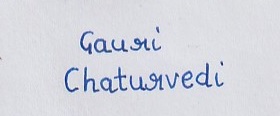 Gauri
Chaturvedi